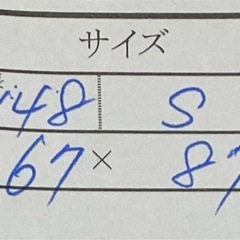 サイズ
48 S
67 × 87